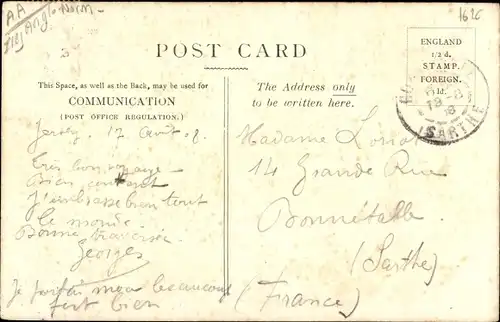 A.A
Iles Anglo Norm -
1626
POST CARD
This Space, as well as the Back, may be used for
COMMUNICATION
(POST OFFICE REGULATION.)
The Address only
to be written here.
ENGLAND
1/2 d.
STAMP.
FOREIGN.
1d.
19-8
SARTHE
Jersey, 17 Août 08.
Très bon voyage -
Bien content
J'embrasse bien tout
le monde.
Bonne traversée
Georges
Je mieux beaucoup
fort bien
Madame
14 Grande Rue
Bonnétable
(Sarthe)
(France)